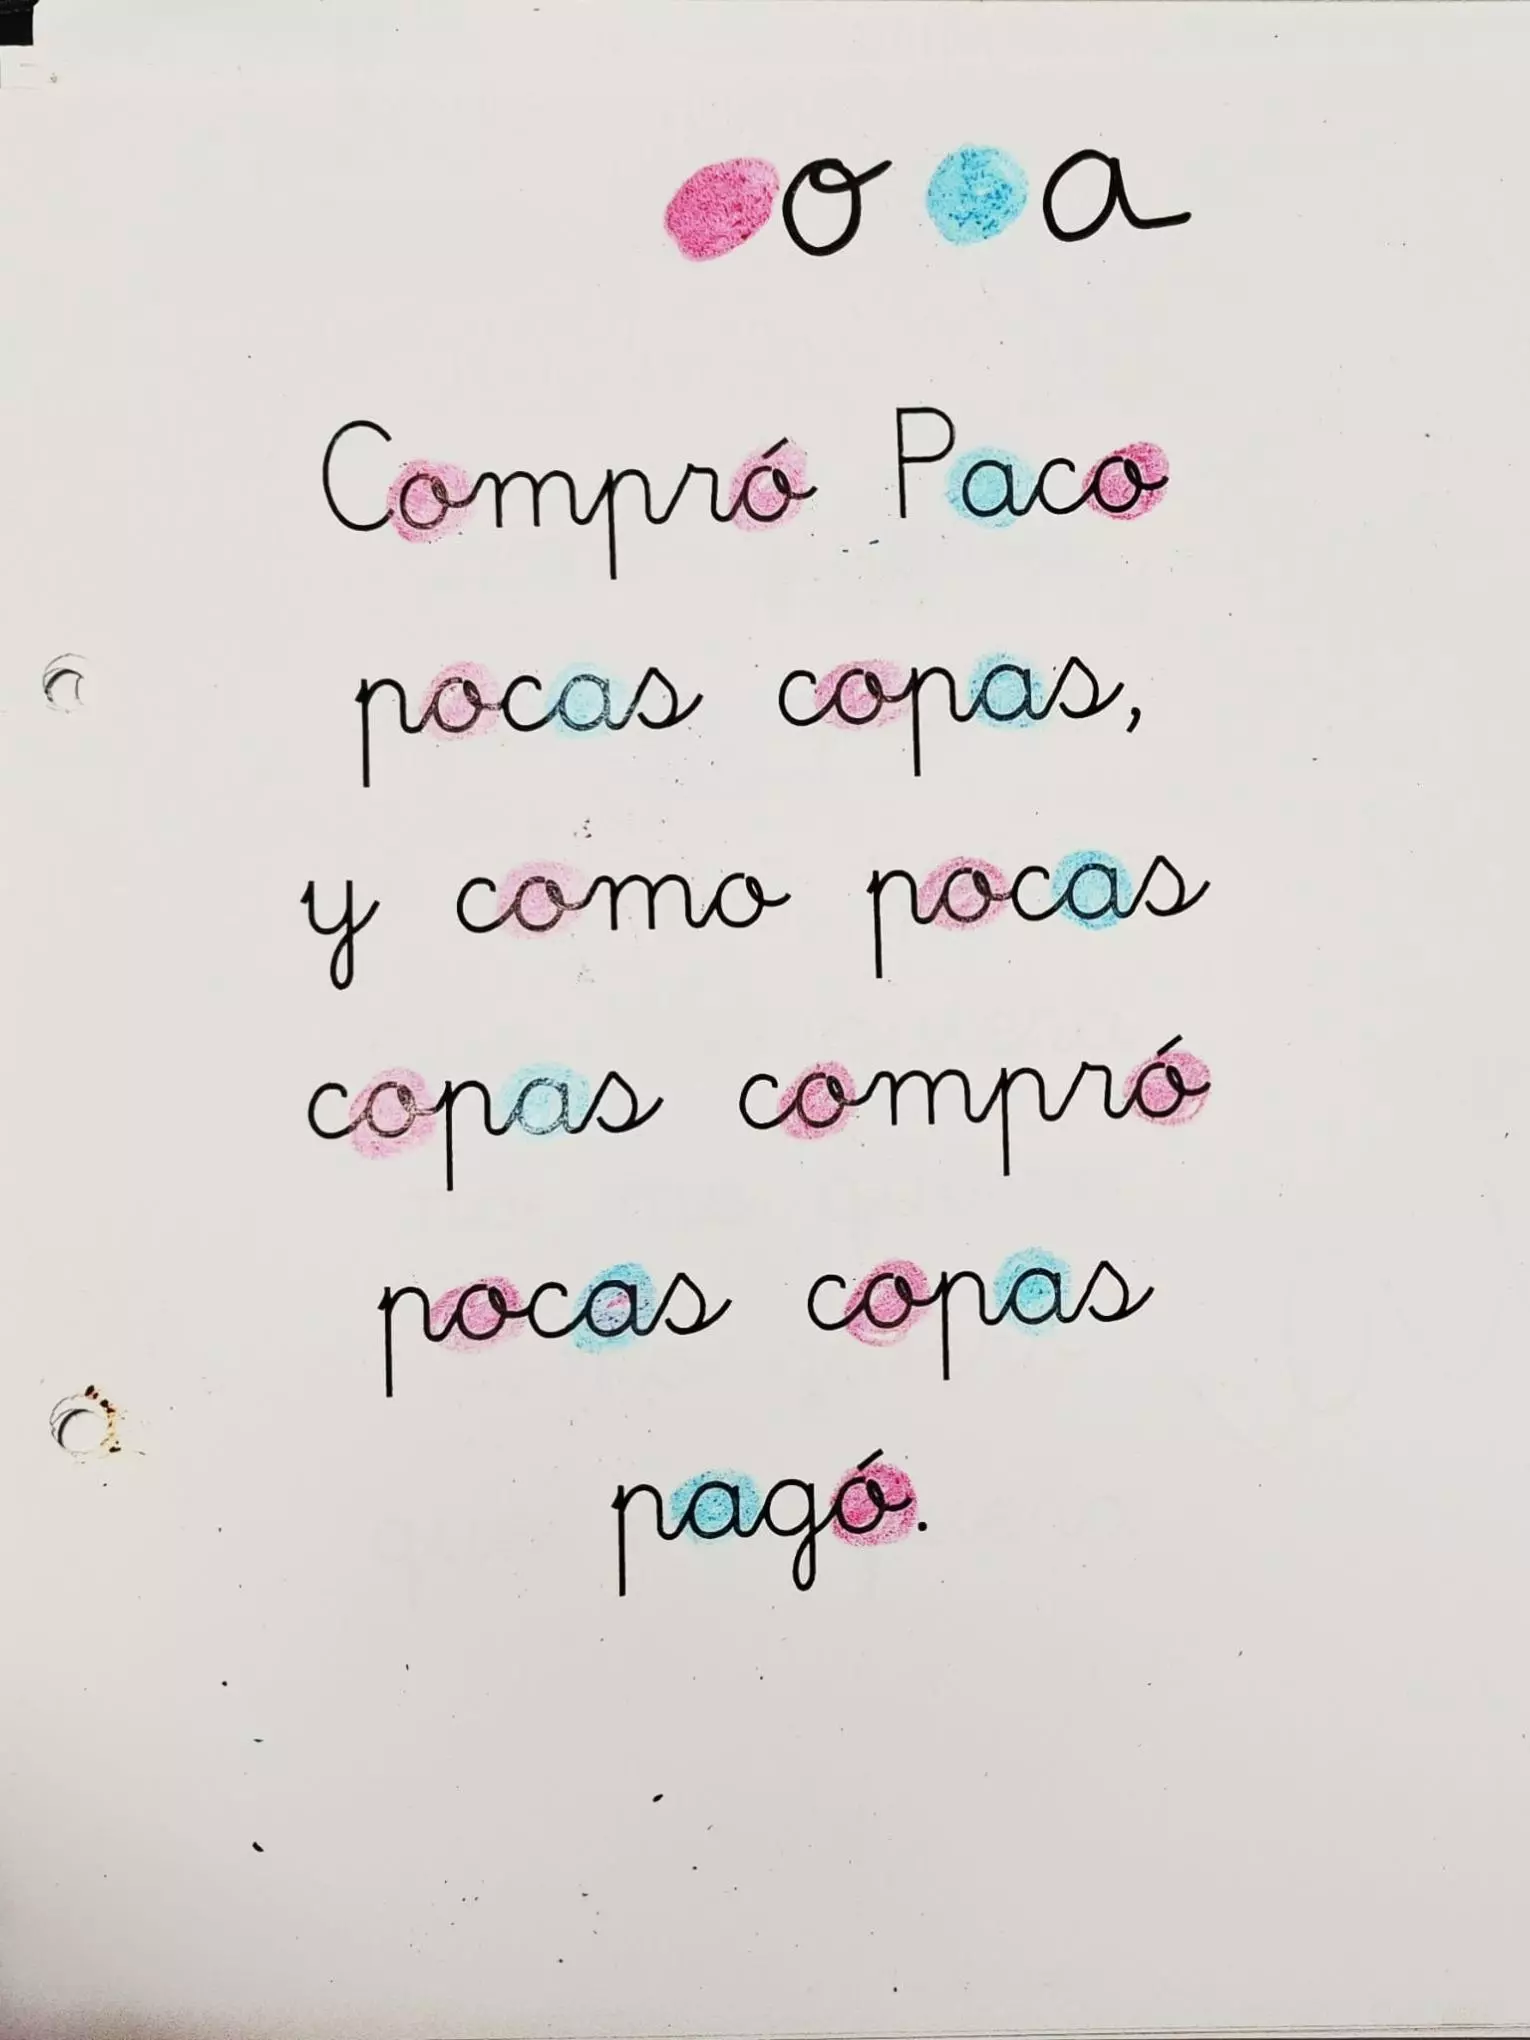 o a
Compró Paco
pocas copas,
y como pocas
copas compró
pocas copas
pagó.